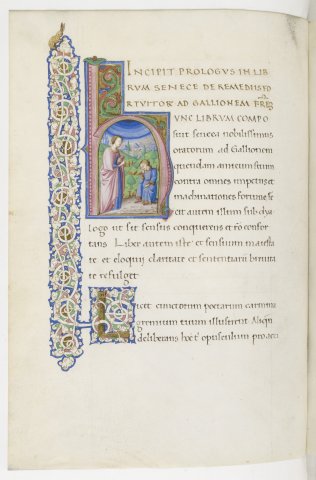 INCIPIT PROLOGVS IN LIB
RVM SENECE DE REMEDIIS FO
RTVITORꝜ AD GALLIONEM
HVNC LIBRVM COMPO
suit seneca nobilissimus
oratorum ad Gallionem
quendam amicum suum
contra omnes impetus et
machinationes fortune fe
cit autem illum sub dya
logo ut sit sensus conquerens et rō confor
tans Liber autem iste et sensuum maiesta
te et eloquij claritate et sententiarū breuita
te refulget
Licet cunctorum poetarum carmina
gremium tuum illustrent Aliqn̄
deliberans hoc t opusculum